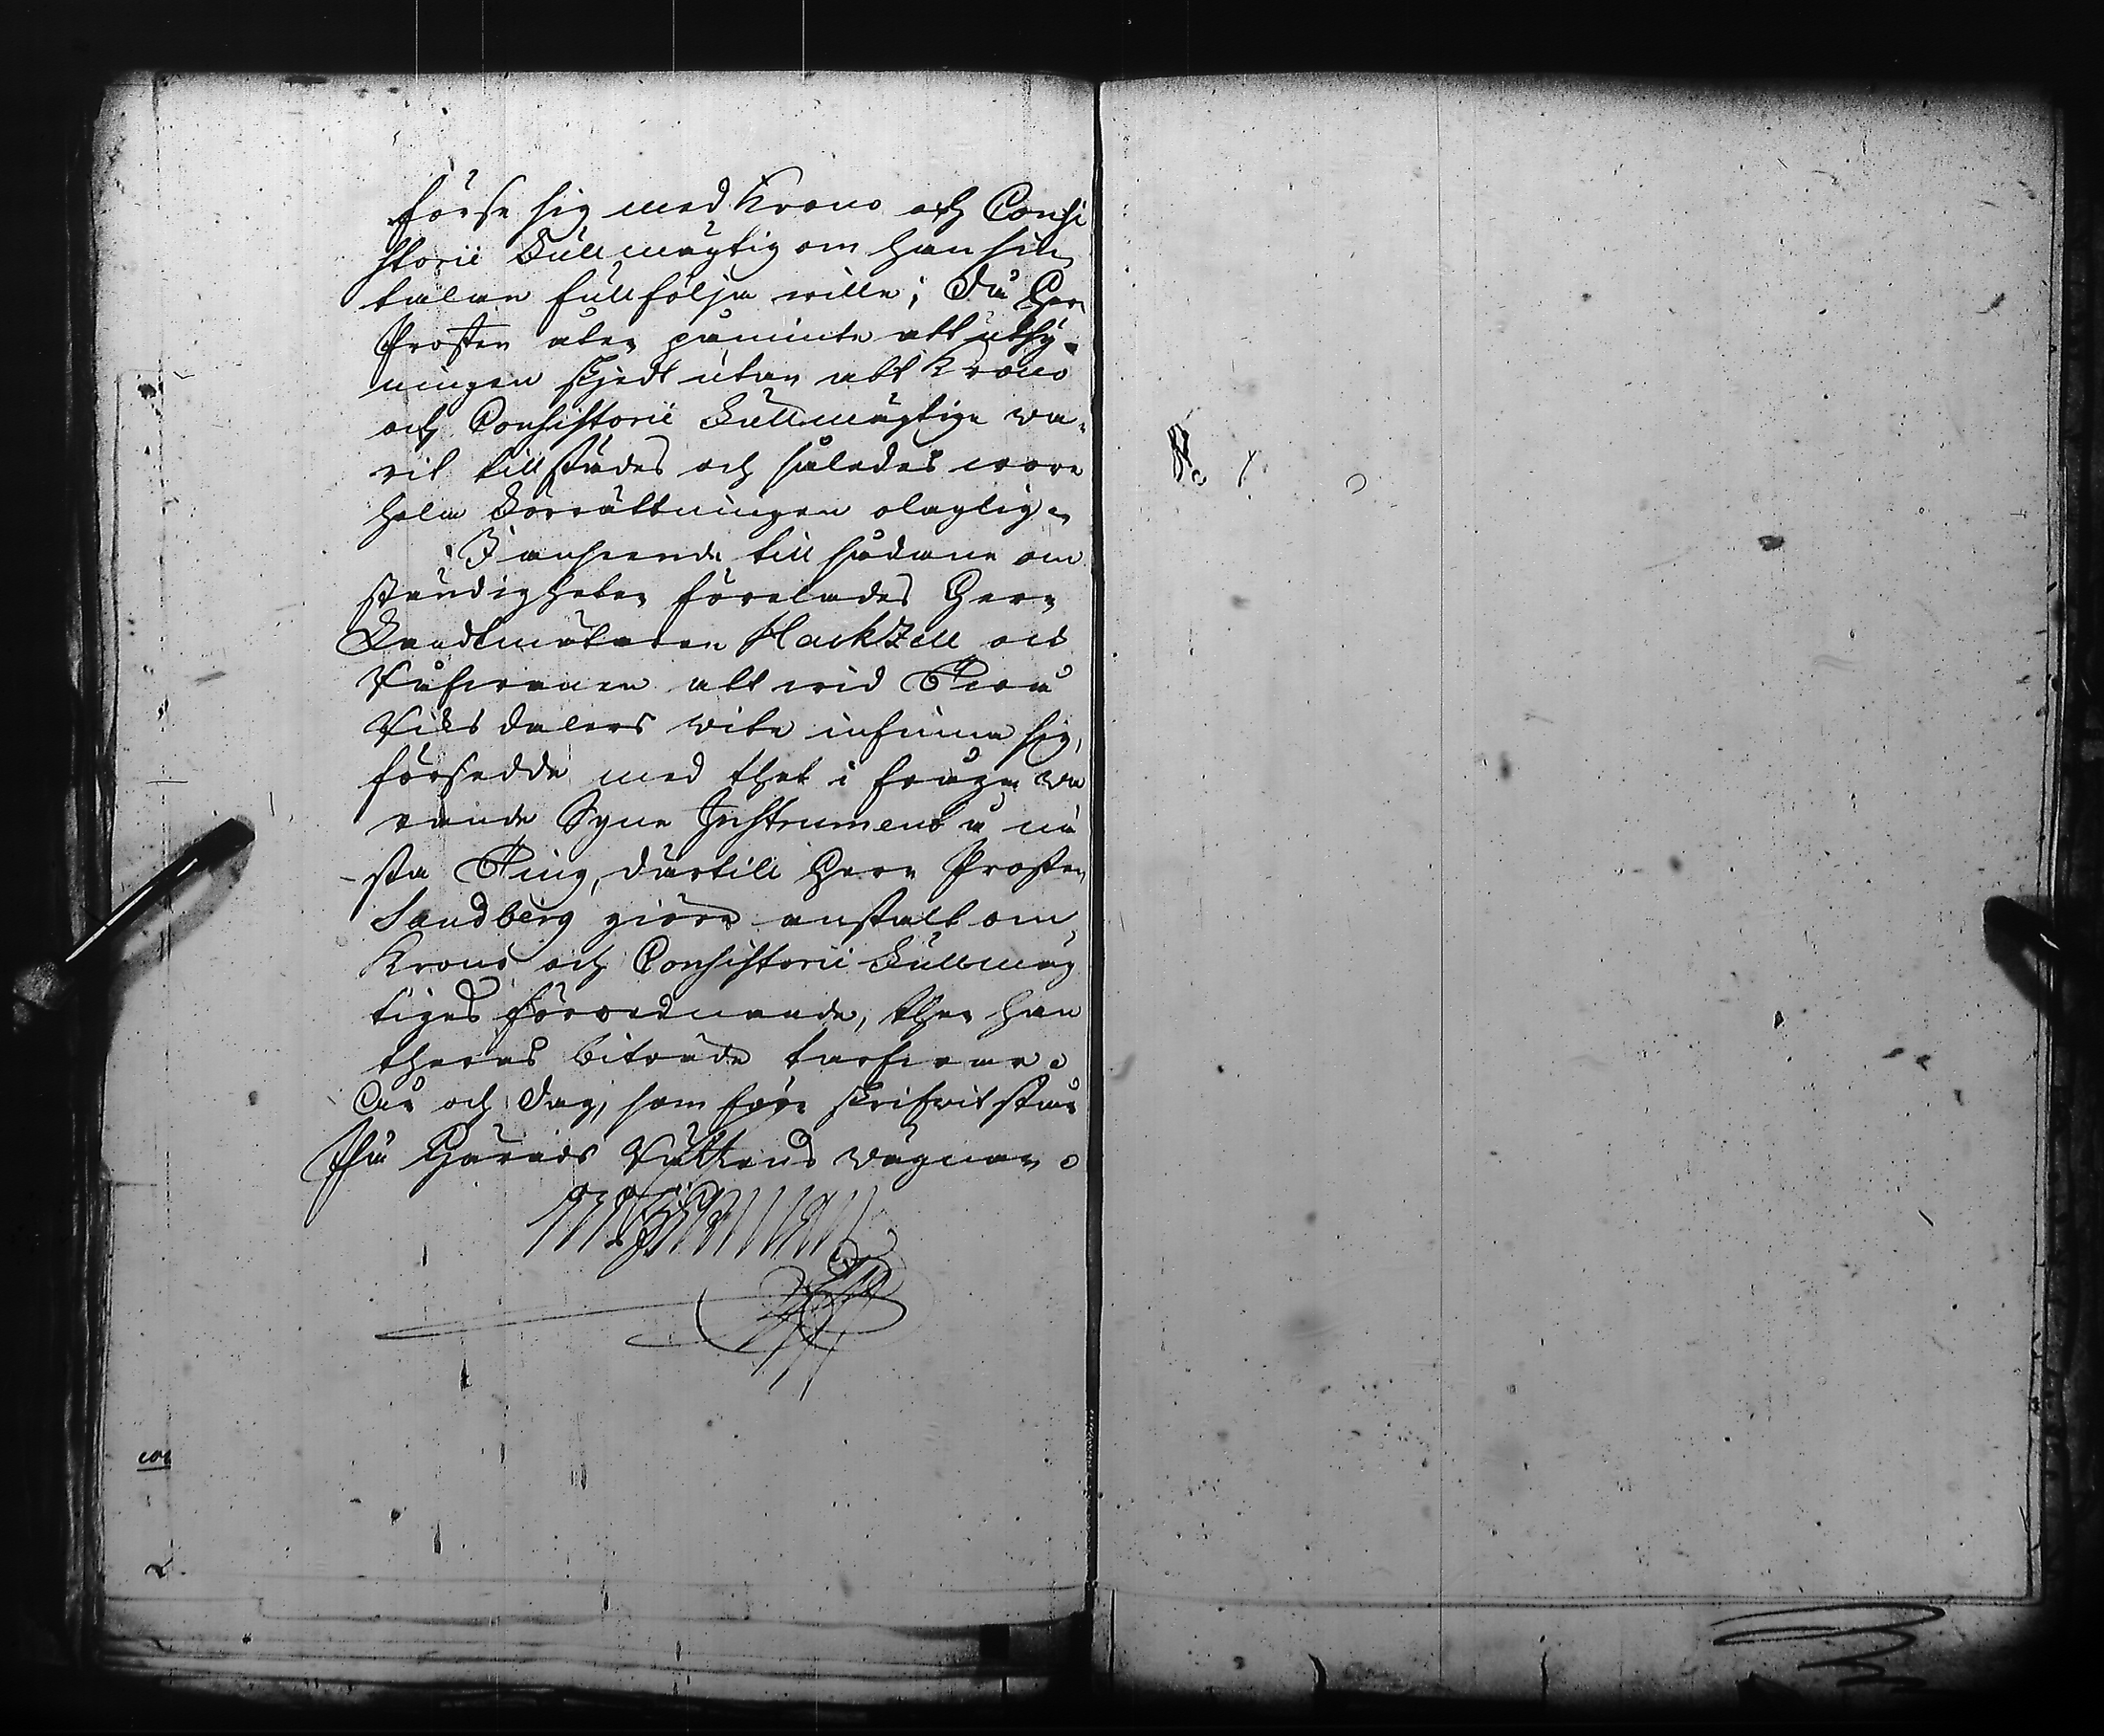 förse sig med Krono och Consi
storii Fullmägtig om han sin
talan fullfölja wille; Då Herr
Prosten åter påminte att utsy-
ningen skjedt utan att Krono
och Consistorii Fullmägtige wa-
rit tillstädes och således wore
hela Förrättningen olaglig.
I anseende till sådane om
ständigheter förelades Herr
Landtmätaren Hackzell och
att wid Twå
Riksdalers wite infinna sig,
försedde med thet i fråga wa
rande Syne Instrument å nä
sta Ting, därtill Herr Prosten
Sandberg giöre anstalt om
Krono och Consistorii Fullmäg
tiges förordnande, ther han
theras biträde tarfwar.
År och Dag, som före skrifwit står
På Härads Rättens wägnar
No 7.